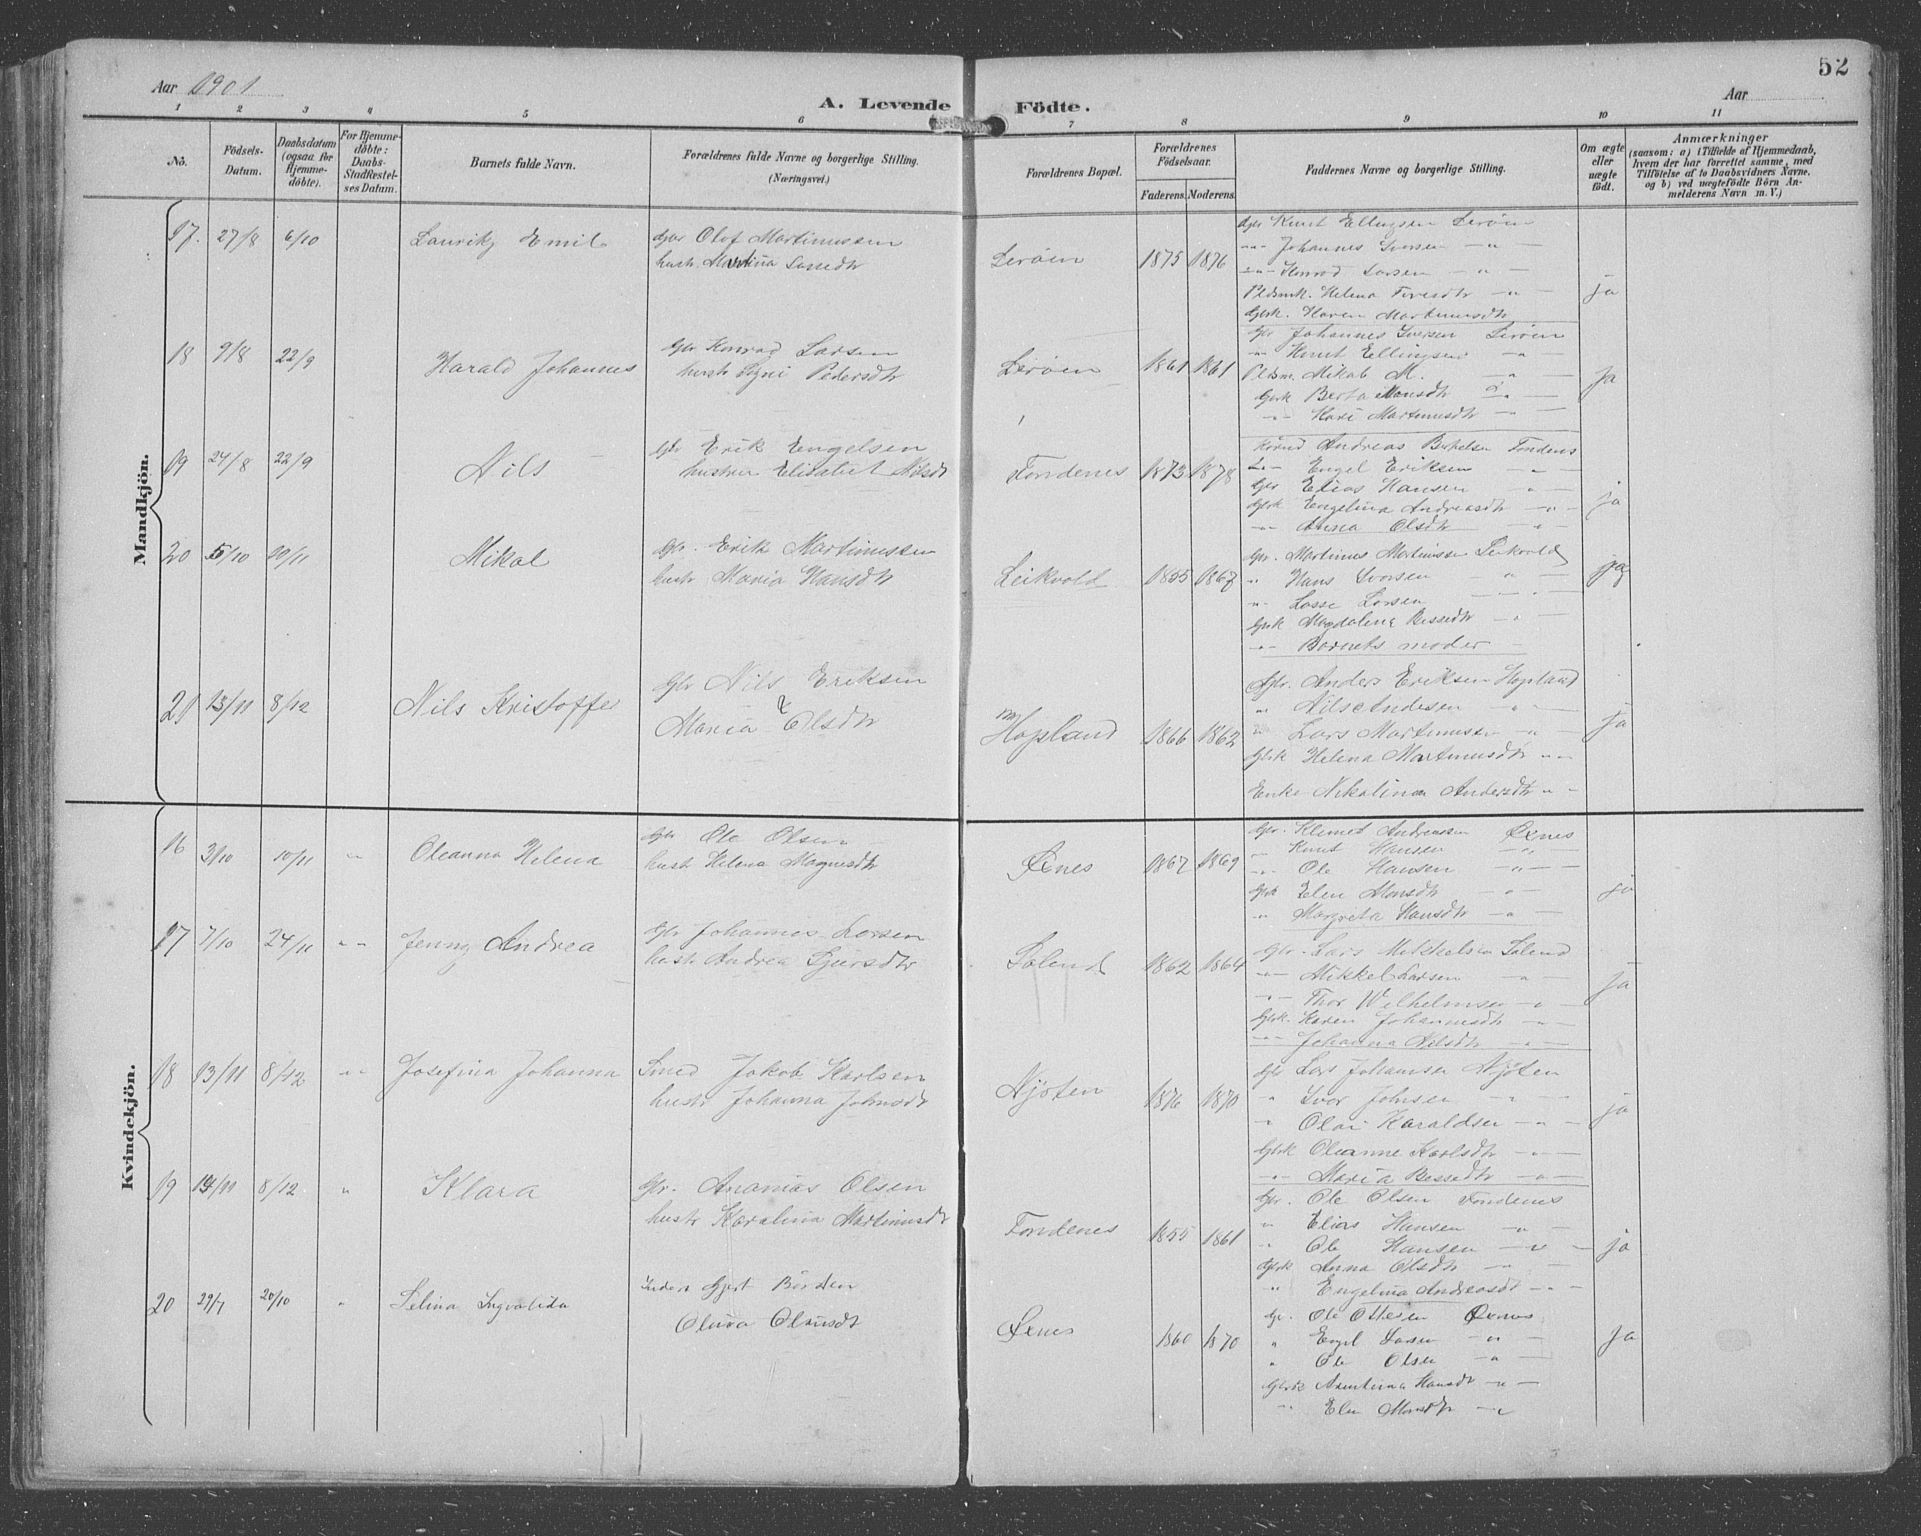 52
Aar 1901
Aar
A. Levende Födte.
1 2 3 4 5 6 7 8 9 10 11
No.
Födsels-Datum.
Daabsdatum (ogsaa for Hjemme-döbte).
For Hjemme-döbte: Daabs-Stadfæstel-ses Datum.
Barnets fulde Navn.
Forældrenes fulde Navne og borgerlige Stilling.
(Næringsvei.)
Forældrenes Bopæl.
Forældrenes Födselsaar.
Faderens. Moderens.
Faddernes Navne og borgerlige Stilling.
Om ægte eller uægte födt.
Anmærkninger
(saasom: a) i Tilfælde af Hjemmedaab,
hvem der har forrettet samme, med
Tilföielse af to Daabsvidners Navne,
og b) ved uægtefödte Börn An-
melderens Navn m. V.)
Mandkjön.
17. 27/8 6/10 Lauritz Emil Gbr Olof Martinussen
hustr Martina Lassedtr
Leröen 1875 1876
Gbr Knut Ellingsen Leröen
-"- Johannes Iversen -"-
-"- Konrad Larsen -"-
Helena -"-
Gbrk. Karen Martinusdtr
ja
18 9/8 22/9 Harald Johannes Gbr Konrad Larsen
hustr Signi Pedersdtr
Leröen 1861 1861
Gbr Johannes Iversen Leröen
-"- Knut Ellingsen -"-
Mikal M. -"-
Gbrk Berta Monsdtr -"-
-"- Kari Martinusdtr -"-
ja
19 24/8 22/9 Nils Gbr Erik Engelsen
hustru Elisabet Nilsdt
Fondenes 1873 1878
Andreas Fondenes
-"- Engel Eriksen -"-
Gbr Elias Hansen -"-
Gbrk Engelina Andreasdtr -"-
-"- Anna Olsdtr -"-
ja
20 5/10 10/11 Mikal Gbr. Erik Martinussen
hustr Maria Hansdtr
Leikvold 1855 1867
Gbr. Martinus Martinussen Leikvold
" Hans Iversen -"-
" Lasse Larsen -"-
Gbrk Magdalena Bessedtr -"-
-"- Barnets moder -
ja
21 13/11 8/12 Nils Kristoffer Gbr Nils Eriksen
&
Maria Olsdtr
Hopland 1866 1862
Gbr. Anders Eriksen Hopland
" Nils Andersen -"-
" Lars Martinussen -"-
Gbrk Helena Martinusdtr -"-
Enke Nikolina Andersdtr -"-
ja
Kvindekjön.
16 3/10 10/11 -"- Oleanna Helena Gbr Ole Olsen
hustr Helena Magnesdtr
Øxnes 1867 1869
Gbr. Klemet Andreassen Øxnes
" Knut Hansen -"-
-"- Ole Hansen -"-
Gbrk Elen Monsdtr -"-
" Margreta Hansdtr -"-
ja
17 7/10 24/11 -"- Jenny Andrea Gbr Johannes Larsen
hustr Andrea Sjursdtr
Solend 1862 1864
Gbr. Lars Mikkelsen Solend
-"- Mikkel Larsen -"-
-"- Thor Wilhelmsen -"-
Gbrk. Karen Johannesdtr -"-
-"- Johanna Nilsdtr -"-
ja
18 13/11 8/12 -"- Josefina Johanna Smed Jakob Karlsen
hustr Johanna Johnsdt
Njöten 1876 1870
Gbr Lars Johansen Njöten
" Ivor Johnsen -"-
" Olai Haraldsen -"-
Gbrk Oleanne Karlsdtr -"-
-"- Maria Bessedtr -"-
ja
19 14/11 8/12 " Klara Gbr. Ananias Olsen
hustr Karolina Martinusdt
Fondenes 1855 1861
Gbr. Ole Olsen Fondenes
" Elias Hansen -"-
" Ole Hansen -"-
Gbrk Anna Olsdtr -"-
" Engelina Andreasdt -"-
ja
20 29/7 20/10 " Selina Ingvalida Inders Gjert Börden
Olava Olausdt
Øxnes 1860 1870
Gbr. Ole Ottesen Øxnes
" Engel Larsen -"-
" Ole Olsen -"-
Gbrk Hansdt -"-
" Elen Monsdtr -"-
ja